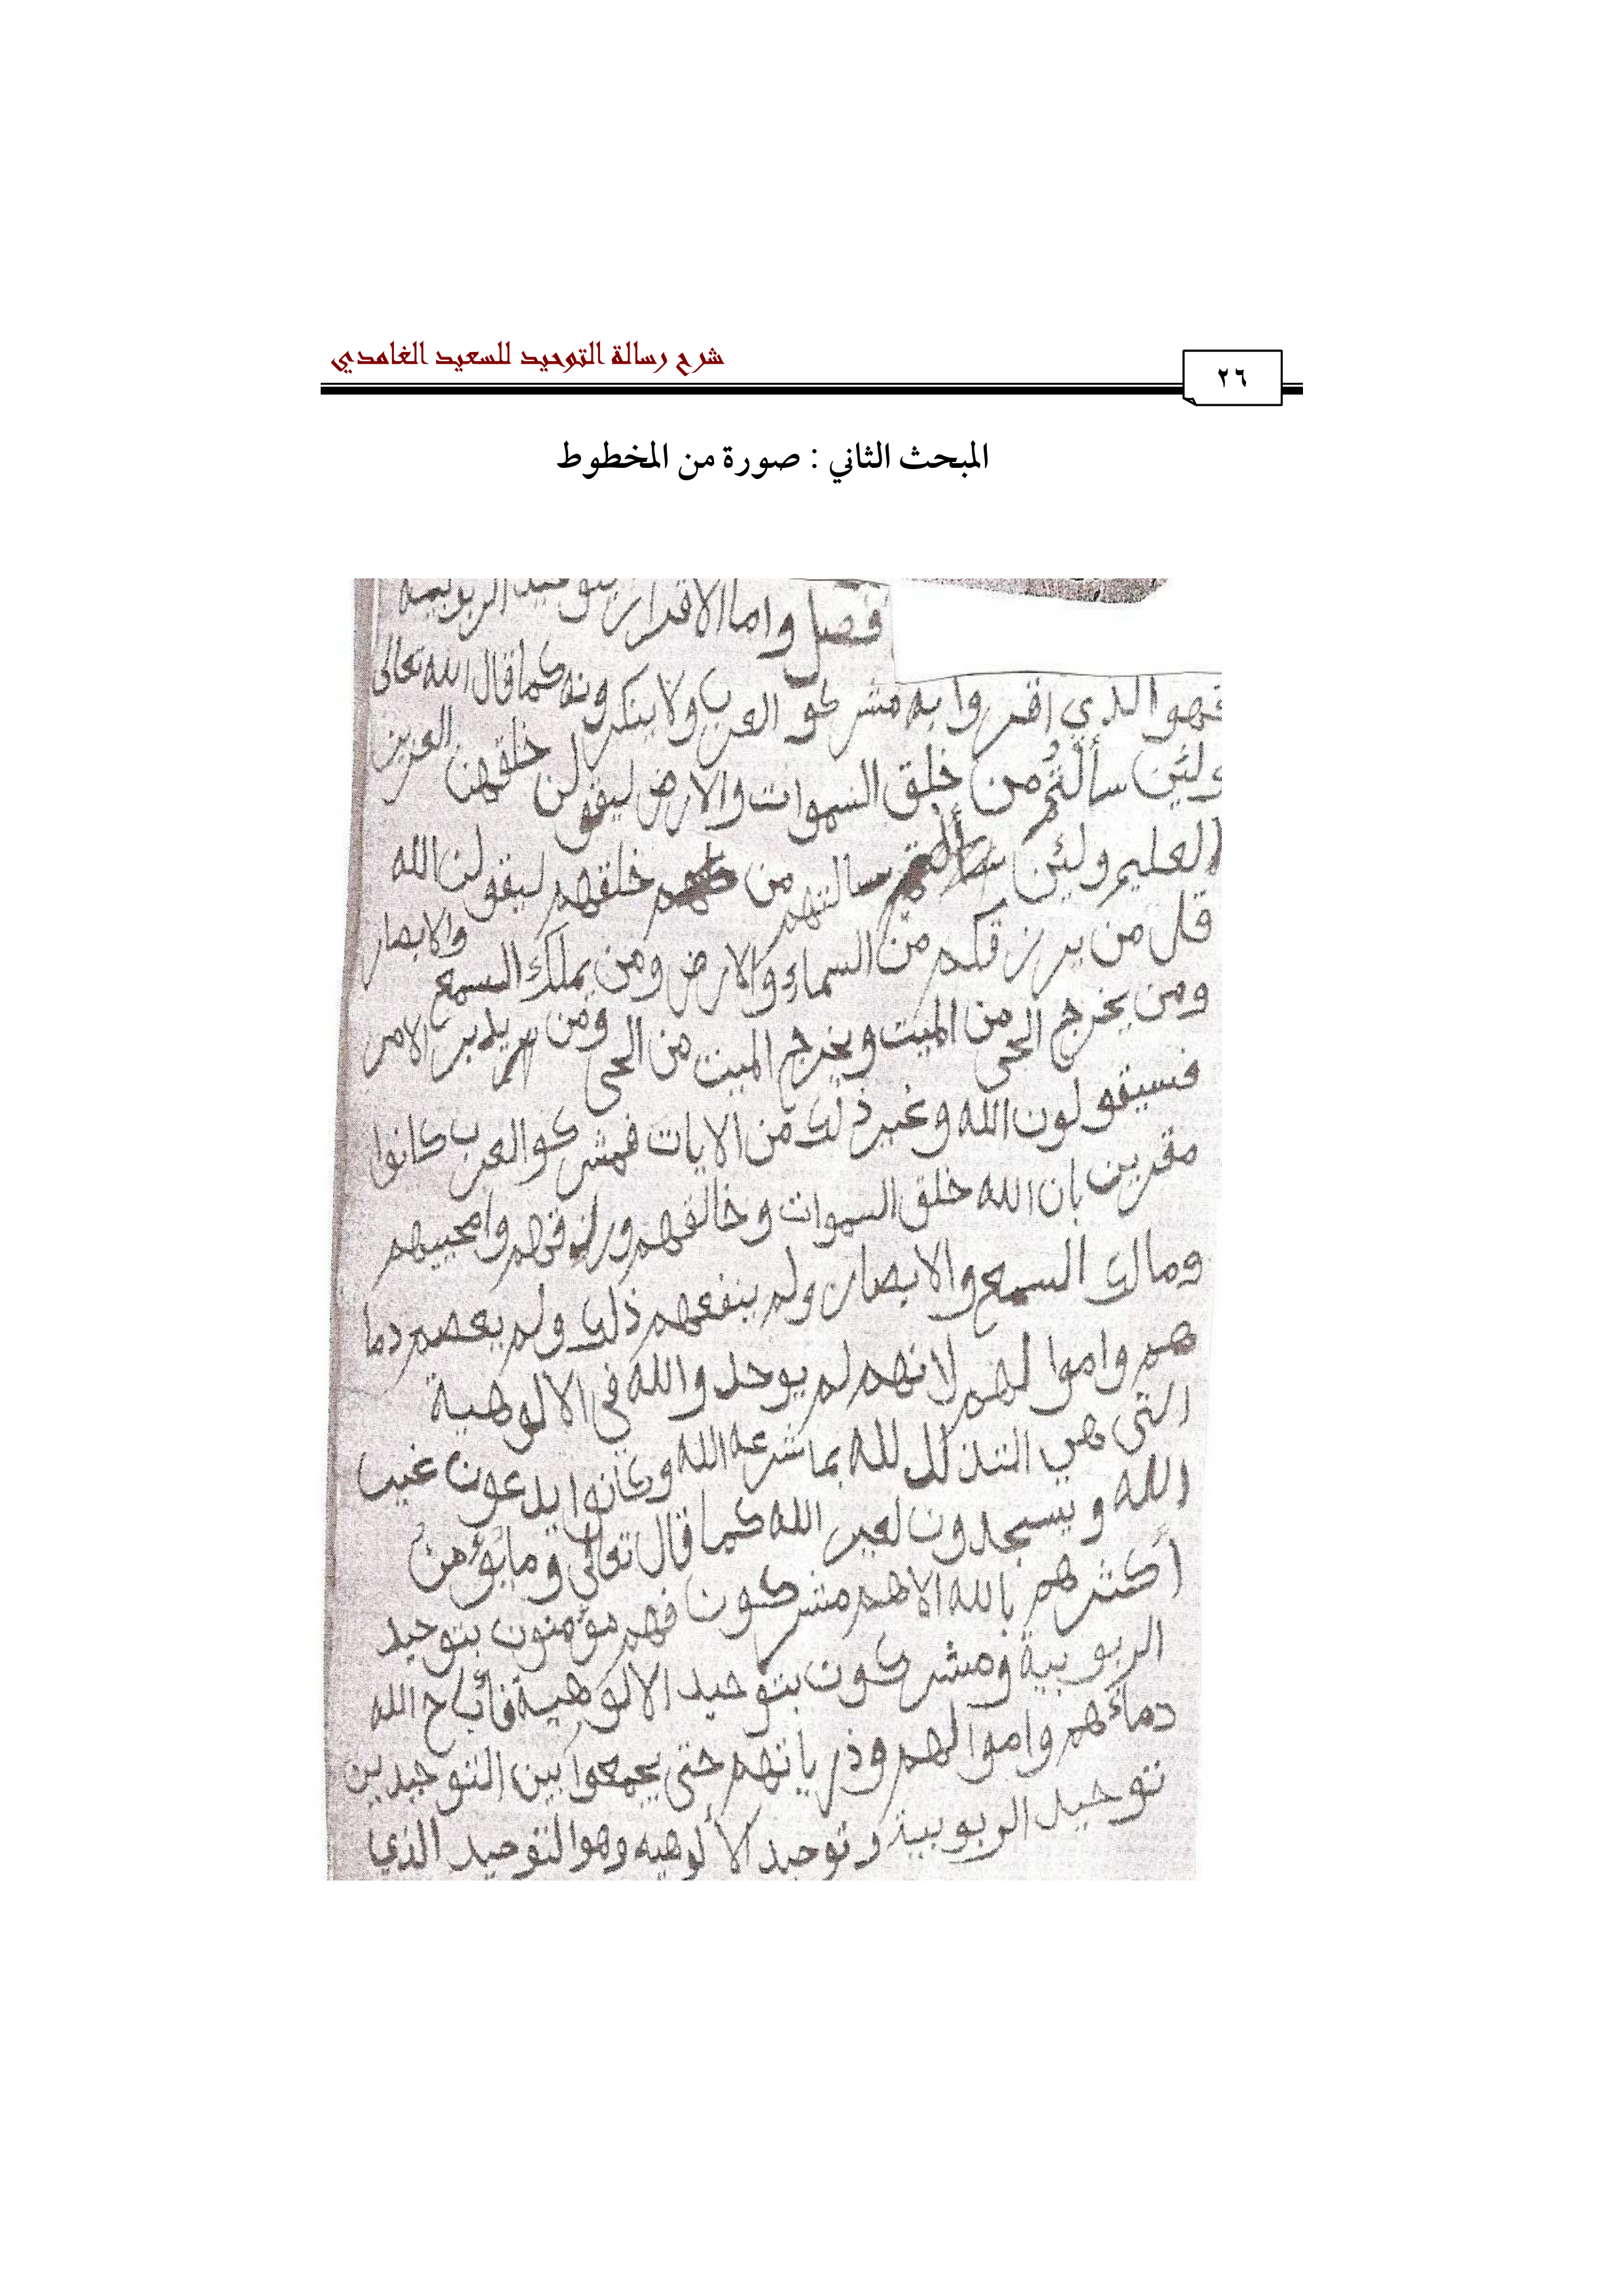 شرح رسالة التوحيد للسعيد الغامدي
٢٦
المبحث الثاني : صورة من المخطوط
فصل واما الاقرار بتوحيد الربوبية
فهو الذي اقروا به مشركو العرب ولا ينكرونه كما قال الله تعالى
ولئن سألتهم من خلق السموات والارض ليقولن خلقهن العزيز
العليم ولئن سالتهم من خلقهم ليقولن الله
قل من يرزقكم من السماء والارض ومن يملك السمع والابصار
ومن يخرج الحي من الميت ويخرج الميت من الحي ومن يدبر الامر
فسيقولون الله وغير ذلك من الايات فمشركو العرب كانوا
مقرين بان الله خلق السموات وخالقهم ورازقهم وامحييهم
ومالك السمع والابصار ولم ينفعهم ذلك ولم يعصم دما
هم واموالهم لانهم لم يوحدوالله في الالوهية
التي هي التذلل لله بما شرعه الله وكانوا يدعون غير
الله ويسجدون لغير الله كما قال تعالى وما يؤمن
أكثرهم بالله الا هم مشركون فهم مؤمنون بتوحيد
الربوبية ومشركون بتوحيد الالوهية فأباح الله
دماءهم واموالهم وذرياتهم حتى يجمعوا بين التوحيدين
توحيد الربوبية وتوحيد الألوهيه وهو التوحيد الذي